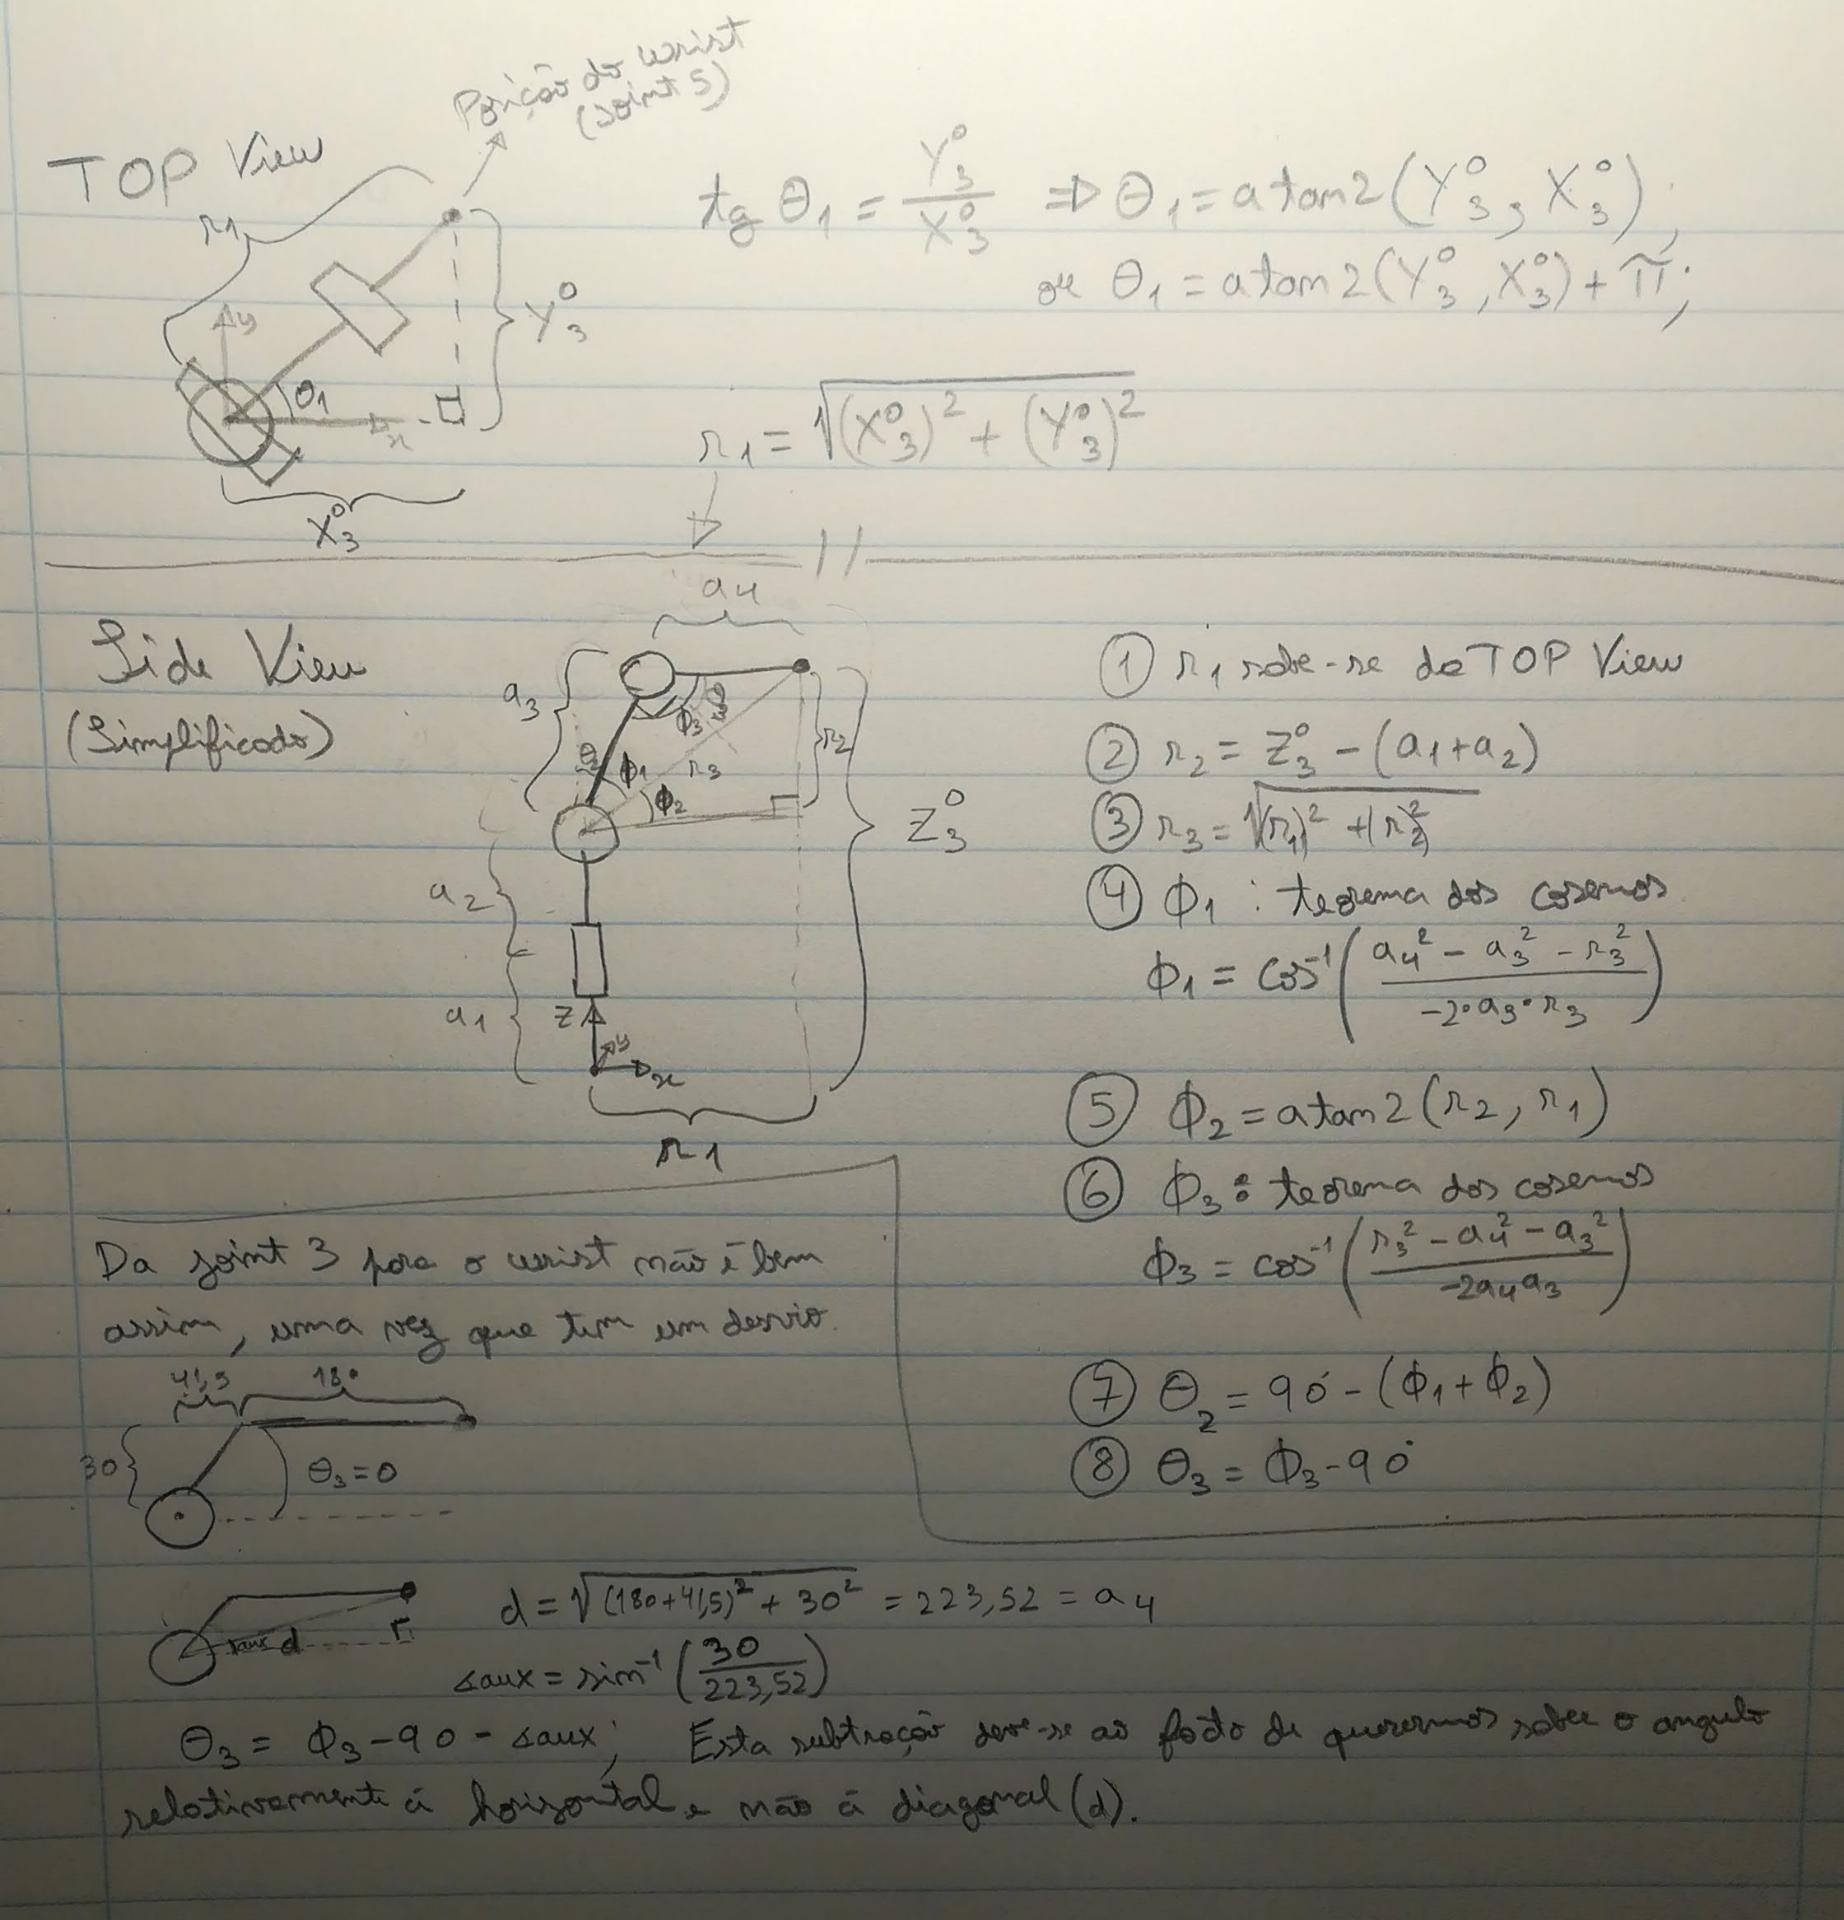 Posição do wrist
(Joint 5)
TOP View
r1
y
θ1
x
Y⁰₃
X⁰₃
tg θ1 = Y⁰₃ / X⁰₃ ⇒ θ1 = atan2(Y⁰₃, X⁰₃);
ou θ1 = atan2(Y⁰₃, X⁰₃) + π;
r1 = √((X⁰₃)² + (Y⁰₃)²)
Side View
(Simplificado)
a4
a3
θ3
ϕ3
θ2
ϕ1
r3
r2
ϕ2
Z⁰₃
a2
a1
z
y
x
r1
① r1 sabe-se da TOP View
② r2 = Z⁰₃ - (a1 + a2)
③ r3 = √((r1)² + (r2)²)
④ ϕ1 : teorema dos cosenos
ϕ1 = cos⁻¹((a4² - a3² - r3²) / (-2·a3·r3))
⑤ ϕ2 = atan2(r2, r1)
⑥ ϕ3 : teorema dos cosenos
ϕ3 = cos⁻¹((r3² - a4² - a3²) / (-2a4a3))
⑦ θ2 = 90° - (ϕ1 + ϕ2)
⑧ θ3 = ϕ3 - 90°
Da joint 3 para o wrist não é bem
assim, uma vez que tem um desvio.
41,5
180
30
θ3 = 0
∡aux d
d = √((180+41,5)² + 30²) = 223,52 = a4
∡aux = sin⁻¹(30 / 223,52)
θ3 = ϕ3 - 90 - ∡aux; Esta subtração deve-se ao facto de querermos saber o angulo
relativamente á horizontal e não á diagonal (d).